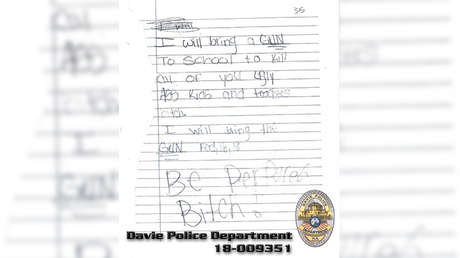 35
I will bring a GUN
To School to kill
all of you ugly
Ass Kids and
I will bring the
GUN
BE
Bitch!
Davie Police Department
18-009351